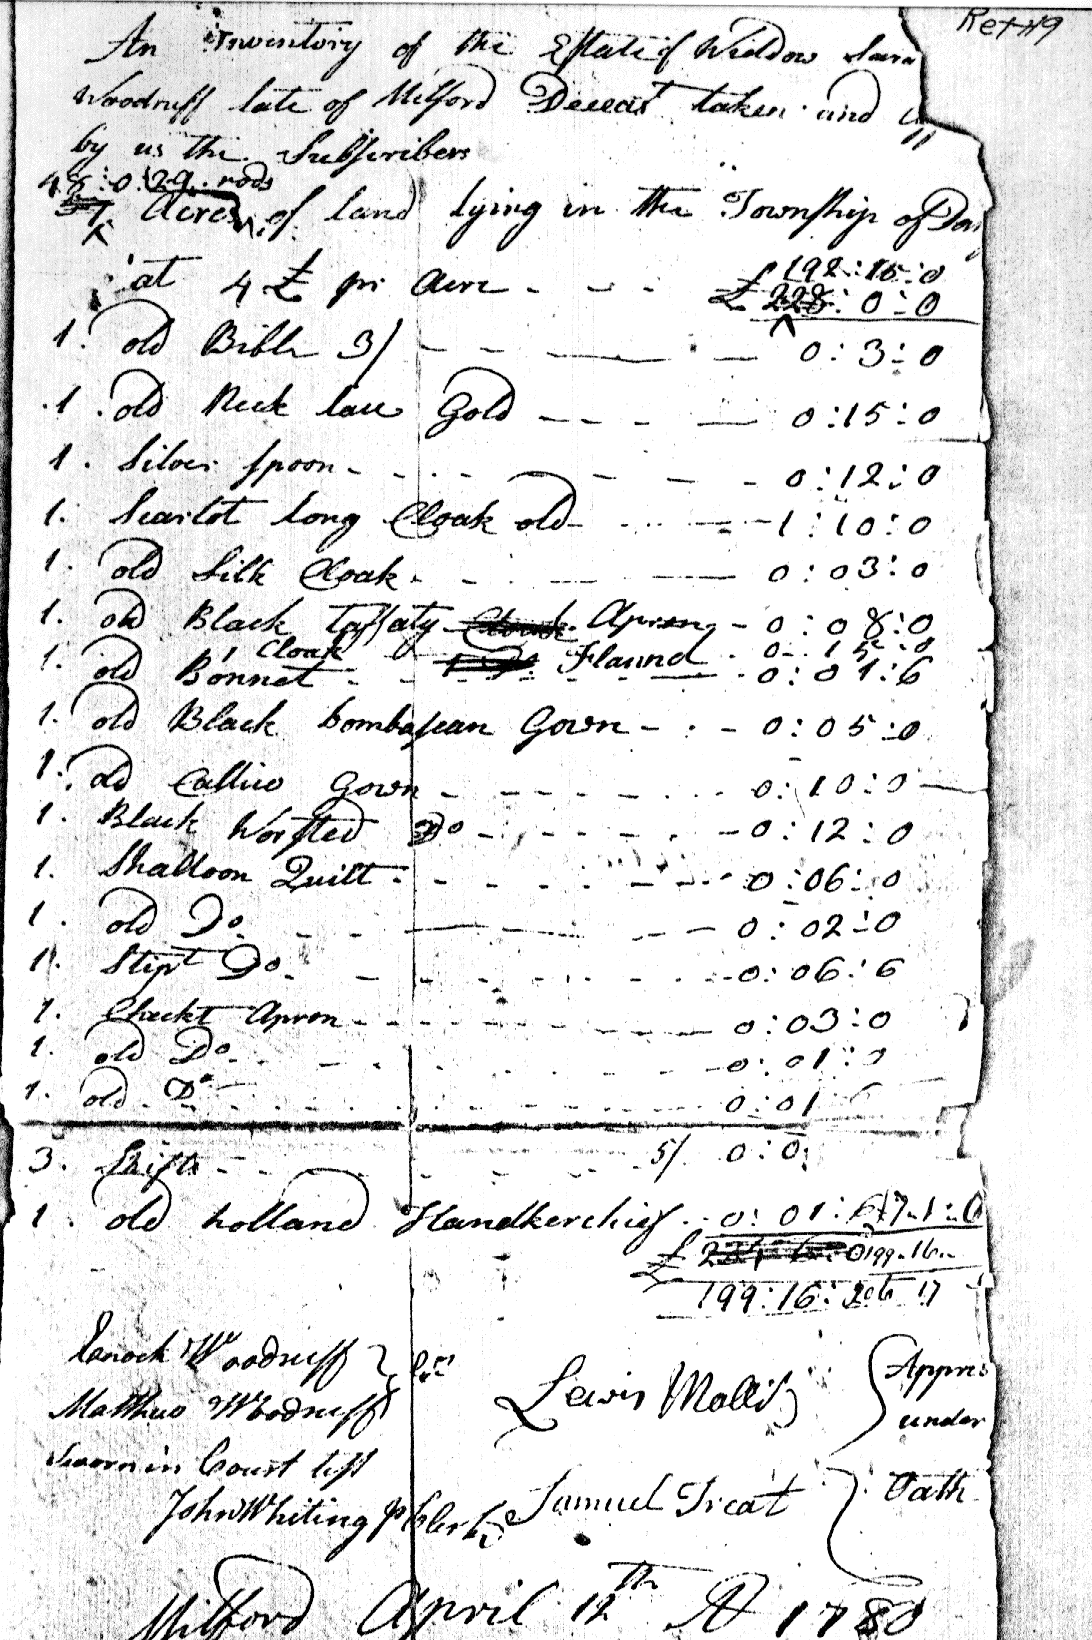 Ret 49
An Inventory of the Estate of Widdow Sara
Woodruff late of Milford Deceast taken and
by us the Subscribers
48:0:29 rods
57 Acres of land lying in the Township of
at 4 £ pr Acre - - - £ 192:15:0
£ 228:0:0
1. old Bible 3/ - - - 0:3:0
1. old Neck lace Gold - - - - 0:15:0
1. Silver Spoon - - - - 0:12:0
1. Scarlot long Cloak old - - - 1:10:0
1. old Silk Cloak - - - 0:03:0
1. old Black Taffaty Cloak Apron - 0:08:0
1 Cloak Flannel 0:15:0
1. old Bonnet - - - - 0:01:6
1. old Black bombasean Gown - - - 0:05:0
1. old Callico Gown - - - - - 0:10:0
1. Black Worsted Do - - - - 0:12:0
1. Shalloon Quilt - - - - - 0:06:0
1. old Do - - - - 0:02:0
1. Stript Do - - - - 0:06:6
1. Checkt Apron - - - - 0:03:0
1. old Do - - - - 0:01:0
1. old Do - - - - 0:01:6
3. Shifts - - - - 5/ 0:0
1. old holland Handkerchief - - 0:01:6 7.1:0
£ 199..16..
199:16:2
Enock Woodruff
Matthew Woodruff
Lewis Mallis
Appris
under
Sworn in Court test
John Whiting Clerk
Samuel Treat
Oath
Milford April 12th AD 1780